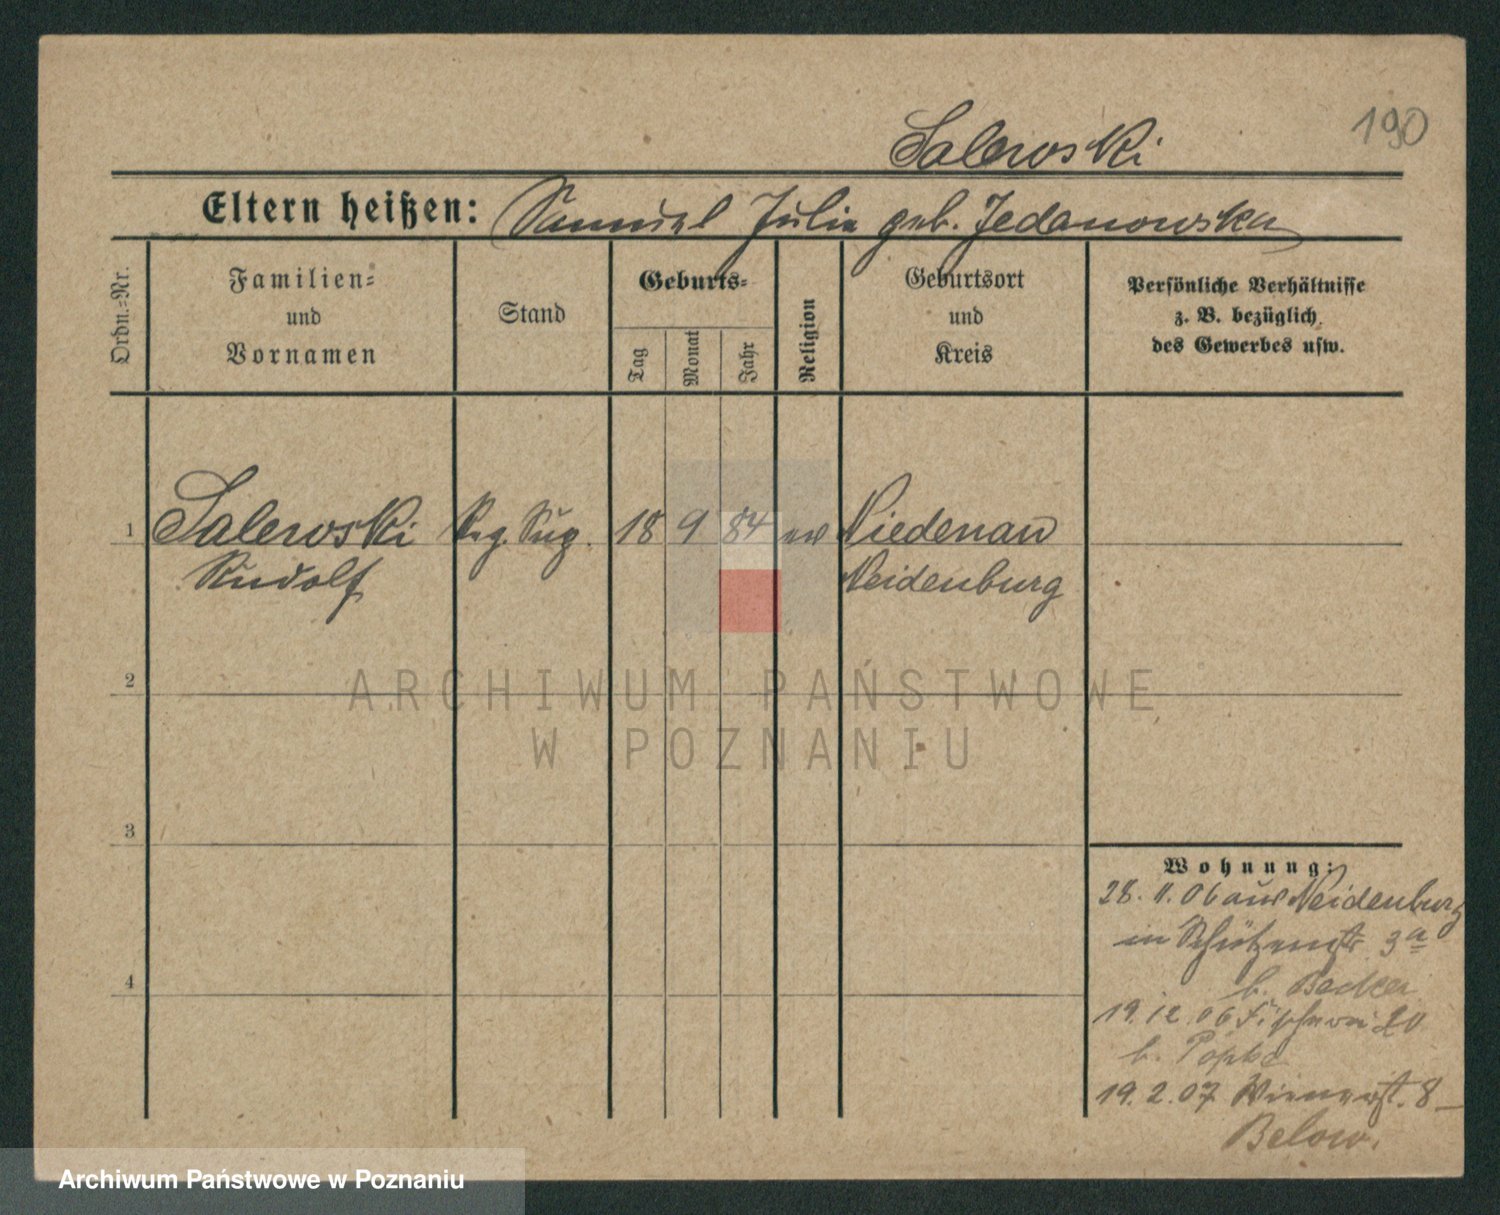 190
Salewski
Eltern heißen: Samuel Julie geb. Jedanowska
Ordn.-Nr.
Familien-
und
Vornamen
Stand
Geburts-
Tag
Monat
Jahr
Religion
Geburtsort
und
Kreis
Persönliche Verhältnisse
z. B. bezüglich
des Gewerbes usw.
1 Salewski Reg. Sup. 18 9 84 ev Niedenau
Rudolf Neidenburg
2
3
4
Wohnung:
28. 11. 06 aus Neidenburg
in Schützenstr 3a
b. Becker
19. 12. 06 Fischerei 20
b.
19. 2. 07 Wienerst. 8
Below.
ARCHIWUM PAŃSTWOWE
W POZNANIU
Archiwum Państwowe w Poznaniu